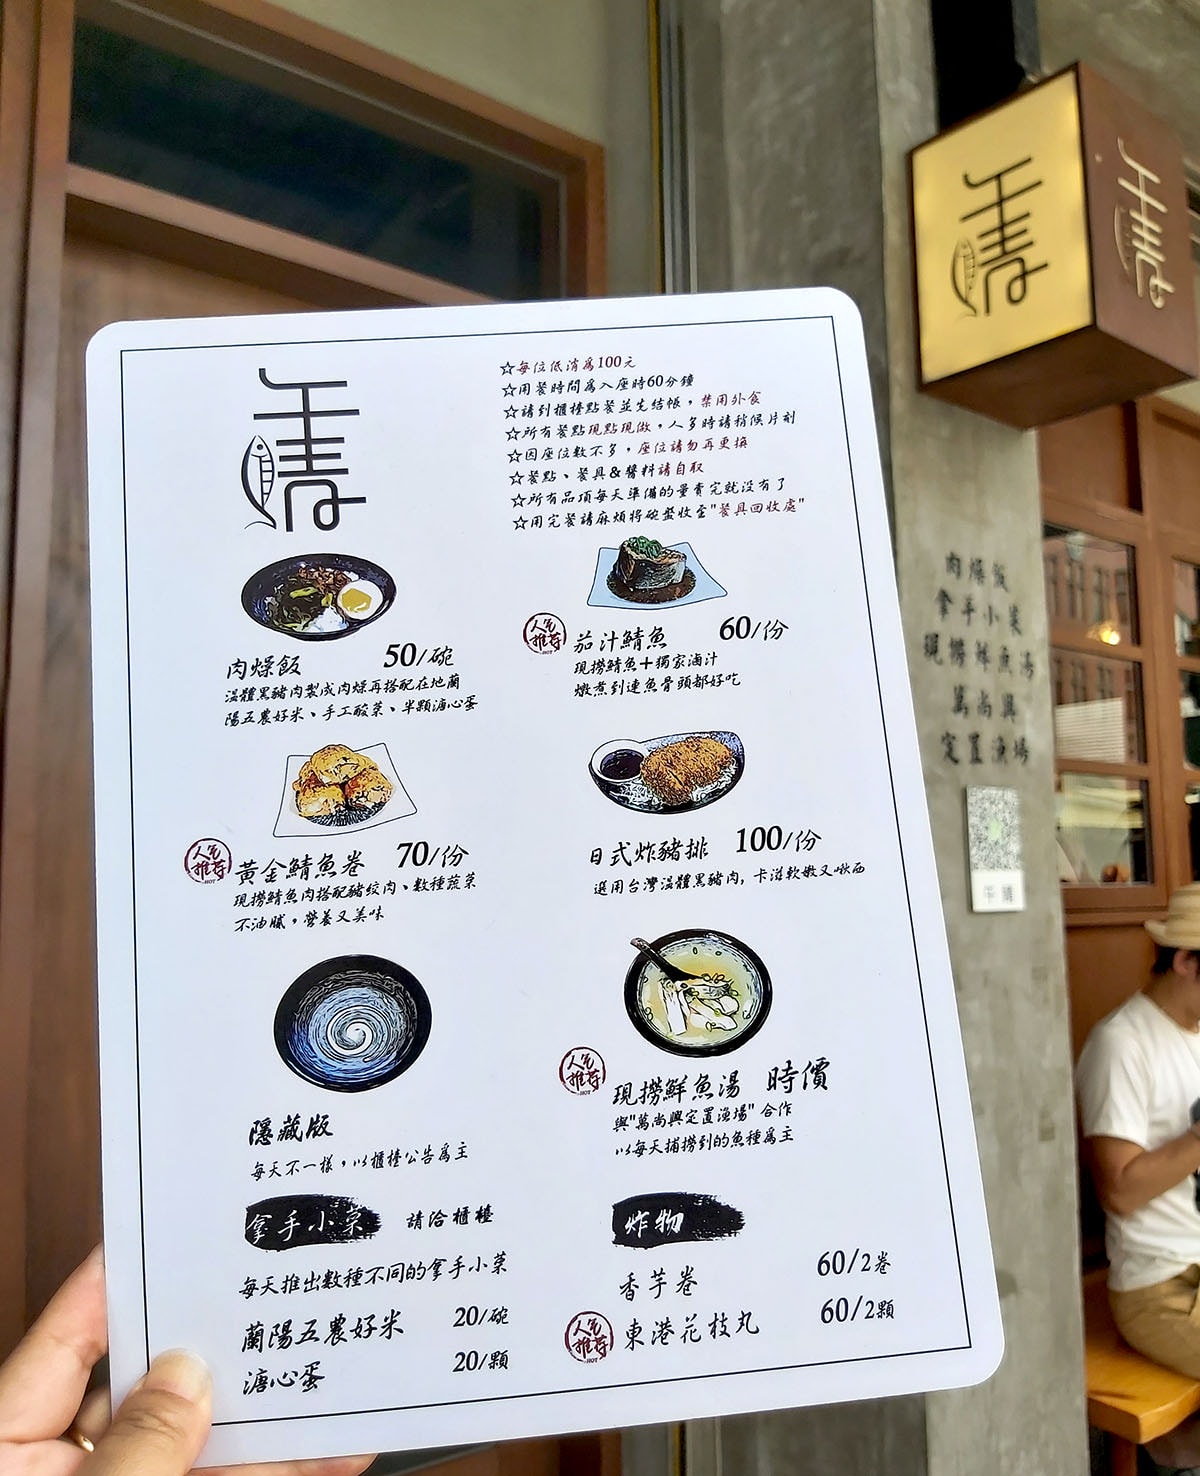 ☆每位低消為100元
☆用餐時間為入座時60分鐘
☆請到櫃檯點餐並先結帳，禁用外食
☆所有餐點現點現做，人多時請稍候片刻
☆因座位數不多，座位請勿再更換
☆餐點、餐具&醬料請自取
☆所有品項每天準備的量賣完就沒有了
☆用完餐請麻煩將碗盤收至"餐具回收處"
肉燥飯 50/碗
溫體黑豬肉製成肉燥再搭配在地蘭
陽五農好米、手工酸菜、半顆溏心蛋
人氣
推荐
HOT
茄汁鯖魚 60/份
現撈鯖魚+獨家滷汁
燉煮到連魚骨頭都好吃
人氣
推荐
HOT
黃金鯖魚卷 70/份
現撈鯖魚肉搭配豬絞肉、數種蔬菜
不油膩，營養又美味
日式炸豬排 100/份
選用台灣溫體黑豬肉，卡滋軟嫩又啾西
隱藏版
每天不一樣，以櫃檯公告為主
人氣
推荐
HOT
現撈鮮魚湯 時價
與"萬尚興定置漁場" 合作
以每天捕撈到的魚種為主
拿手小菜 請洽櫃檯
每天推出數種不同的拿手小菜
蘭陽五農好米 20/碗
溏心蛋 20/顆
炸物
香芋卷 60/2卷
人氣
推荐
HOT
東港花枝丸 60/2顆
肉燥飯
拿手小菜
現撈鮮魚湯
萬尚興
定置漁場